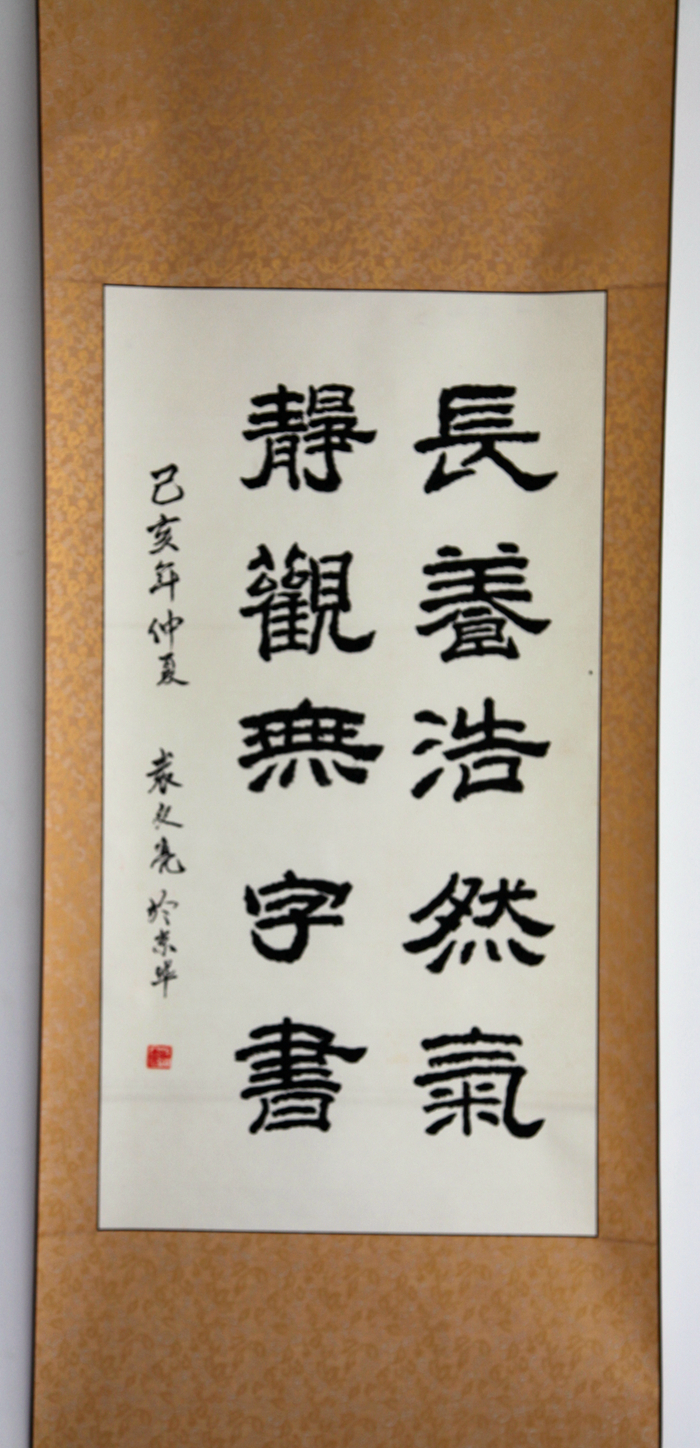 長養浩然氣
靜觀無字書
己亥年仲夏 袁文亮 於京華